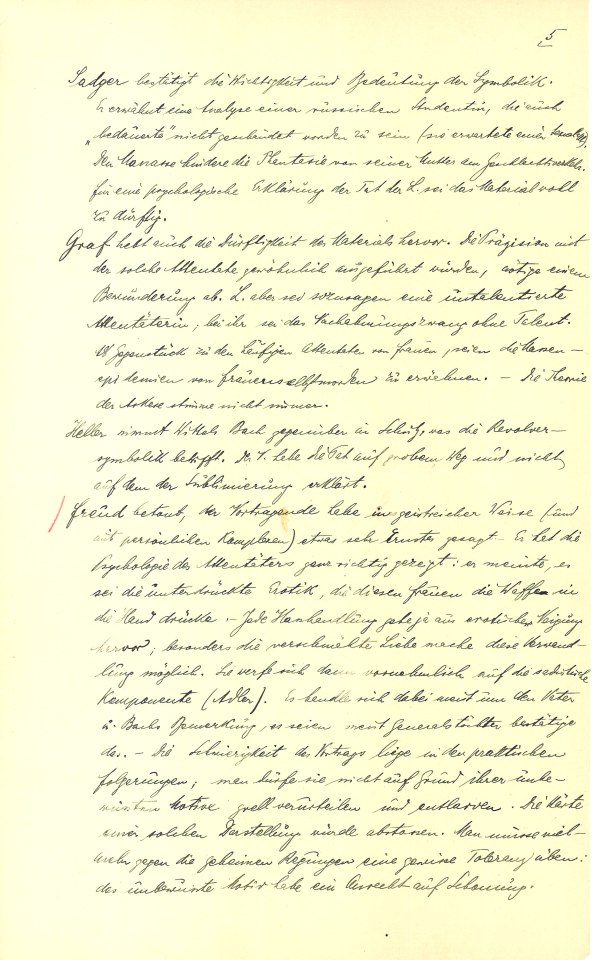 5
Sadger bestätigt die Wichtigkeit und Bedeutung der Symbolik.
Er erwähnt eine Analyse einer russischen Studentin, die auch
„bedauerte“ nicht geschändet worden zu sein (sie erwartete einen
Den Manasse hindere die Phantasie von seiner Mutter am Geschlechtsverkehr.
Für eine psychologische Erklärung der Tat der L. sei das Material wohl
zu dürftig.
Graf hebt auch die Dürftigkeit des Materials hervor. Die Präzision mit
der solche Attentate gewöhnlich ausgeführt würden, nötige einem
Bewunderung ab. L. aber sei sozusagen eine untalentierte
Attentäterin; bei ihr sei das Nachahmungszwang ohne Talent.
Als Gegenstück zu den häufigen Attentaten von Frauen, seien die Massen-
epidemien von Frauenselbstmorden zu erwähnen. – Die Theorie
der Askese stimme nicht immer.
Heller nimmt Wittels Bach gegenüber in Schutz, was die Revolver-
symbolik betrifft. Dr. habe die Tat auf grobem Weg und nicht
auf dem der Sublimierung erklärt.
Freud betont, der Vortragende habe in geistreicher Weise (und
mit persönlichen Komplexen) etwas sehr Ernstes gesagt. Es hat die
Psychologie des Attentäters ganz richtig gezeigt: er meinte, es
sei die unterdrückte Erotik, die diesen Frauen die Waffen in
die Hand drücke. – Jede Hasshandlung gehe ja aus erotischer Neigung
hervor; besonders die verschmähte Liebe mache diese Verwand-
lung möglich. Sie werfe sich dann vornehmlich auf die sadistische
Komponente (Adler). Es handle sich dabei meist um den Vater
u. Bachs Bemerkung, es seien meist Generalstöchter bestätige
das. – Die Schwierigkeit des Vortrags liege in den praktischen
Folgerungen; man dürfe sie nicht auf Grund ihrer unbe-
wussten Motive grell verurteilen und entlarven. Die Härte
einer solchen Darstellung würde abstossen. Man müsse viel-
mehr gegen die geheimen Regungen eine gewisse Toleranz üben:
das unbewusste Motiv habe ein Anrecht auf Schonung.